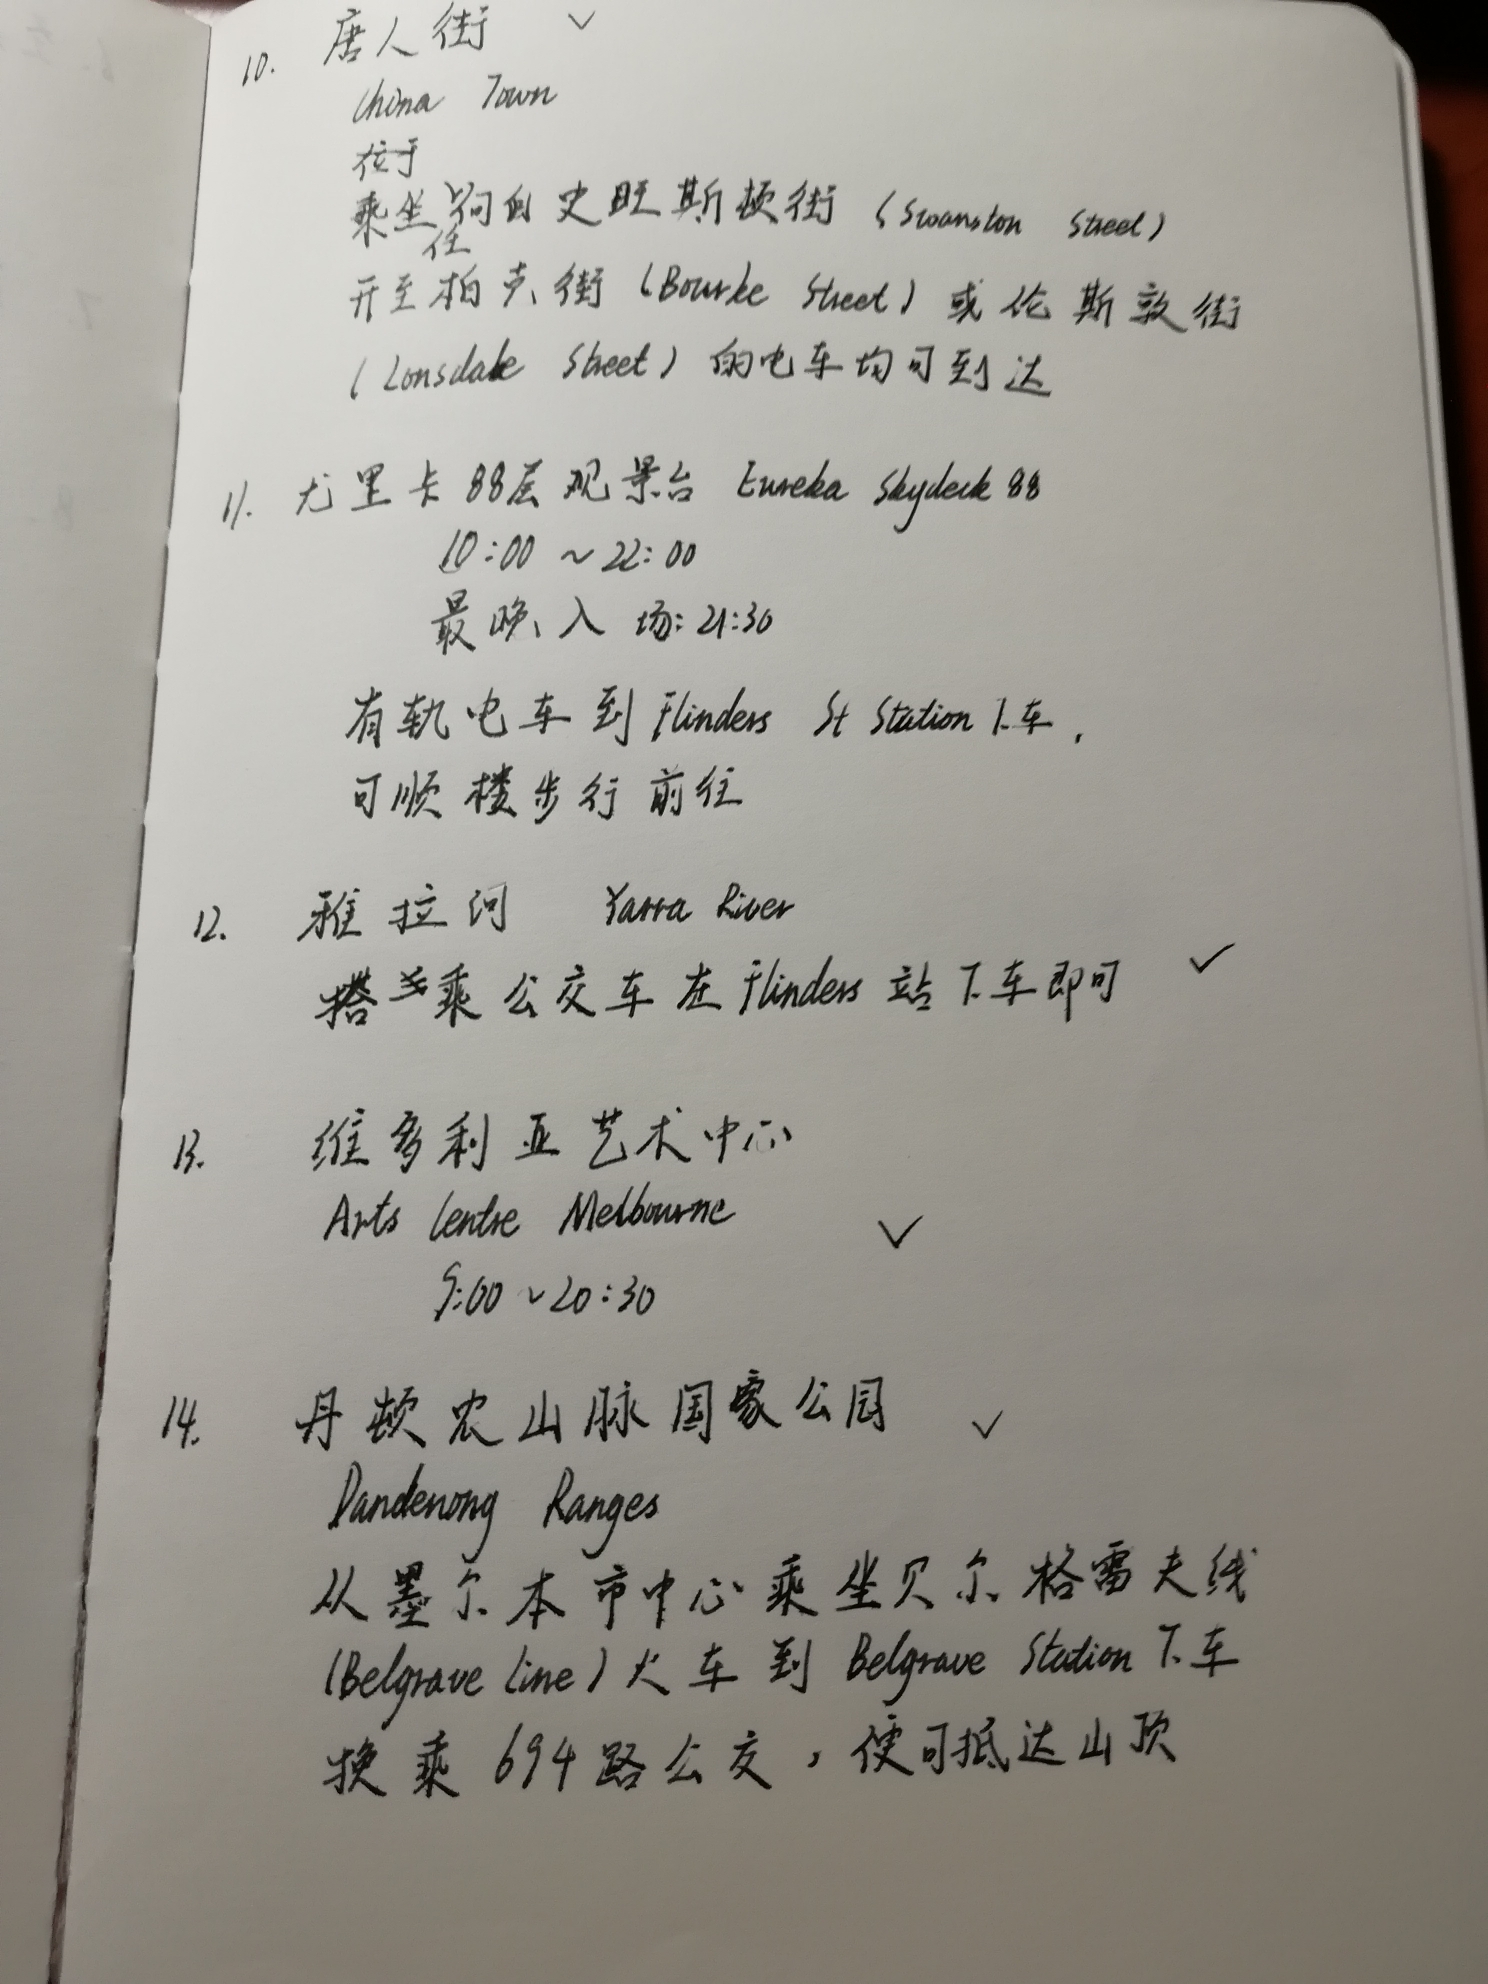 10. 唐人街 ✓
China Town
位于
乘坐任何自史旺斯顿街 (Swanston Street)
开至柏克街 (Bourke Street) 或伦斯敦街
(Lonsdale Street) 的电车均可到达
11. 尤里卡88层观景台 Eureka Skydeck 88
10:00 ~ 22:00
最晚入场: 21:30
有轨电车到 Flinders St Station 下车,
可顺楼步行前往
12. 雅拉河 Yarra River
搭乘公交车在 Flinders 站下车即可 ✓
13. 维多利亚艺术中心
Arts Centre Melbourne ✓
9:00 ~ 20:30
14. 丹顿农山脉国家公园 ✓
Dandenong Ranges
从墨尔本市中心乘坐贝尔格雷夫线
(Belgrave Line) 火车到 Belgrave Station 下车
换乘 694路公交, 便可抵达山顶